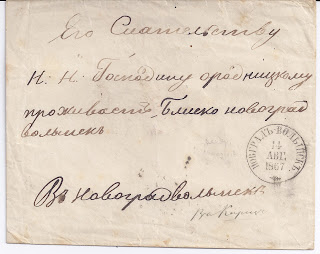 Его Сиательству
Н. Н. Господину
проживаетъ, Близко новоград
волынскъ
НОВГРАДЪ-ВОЛЫНСКЪ
14
АВГ.
1867
Въ новоградволынскъ